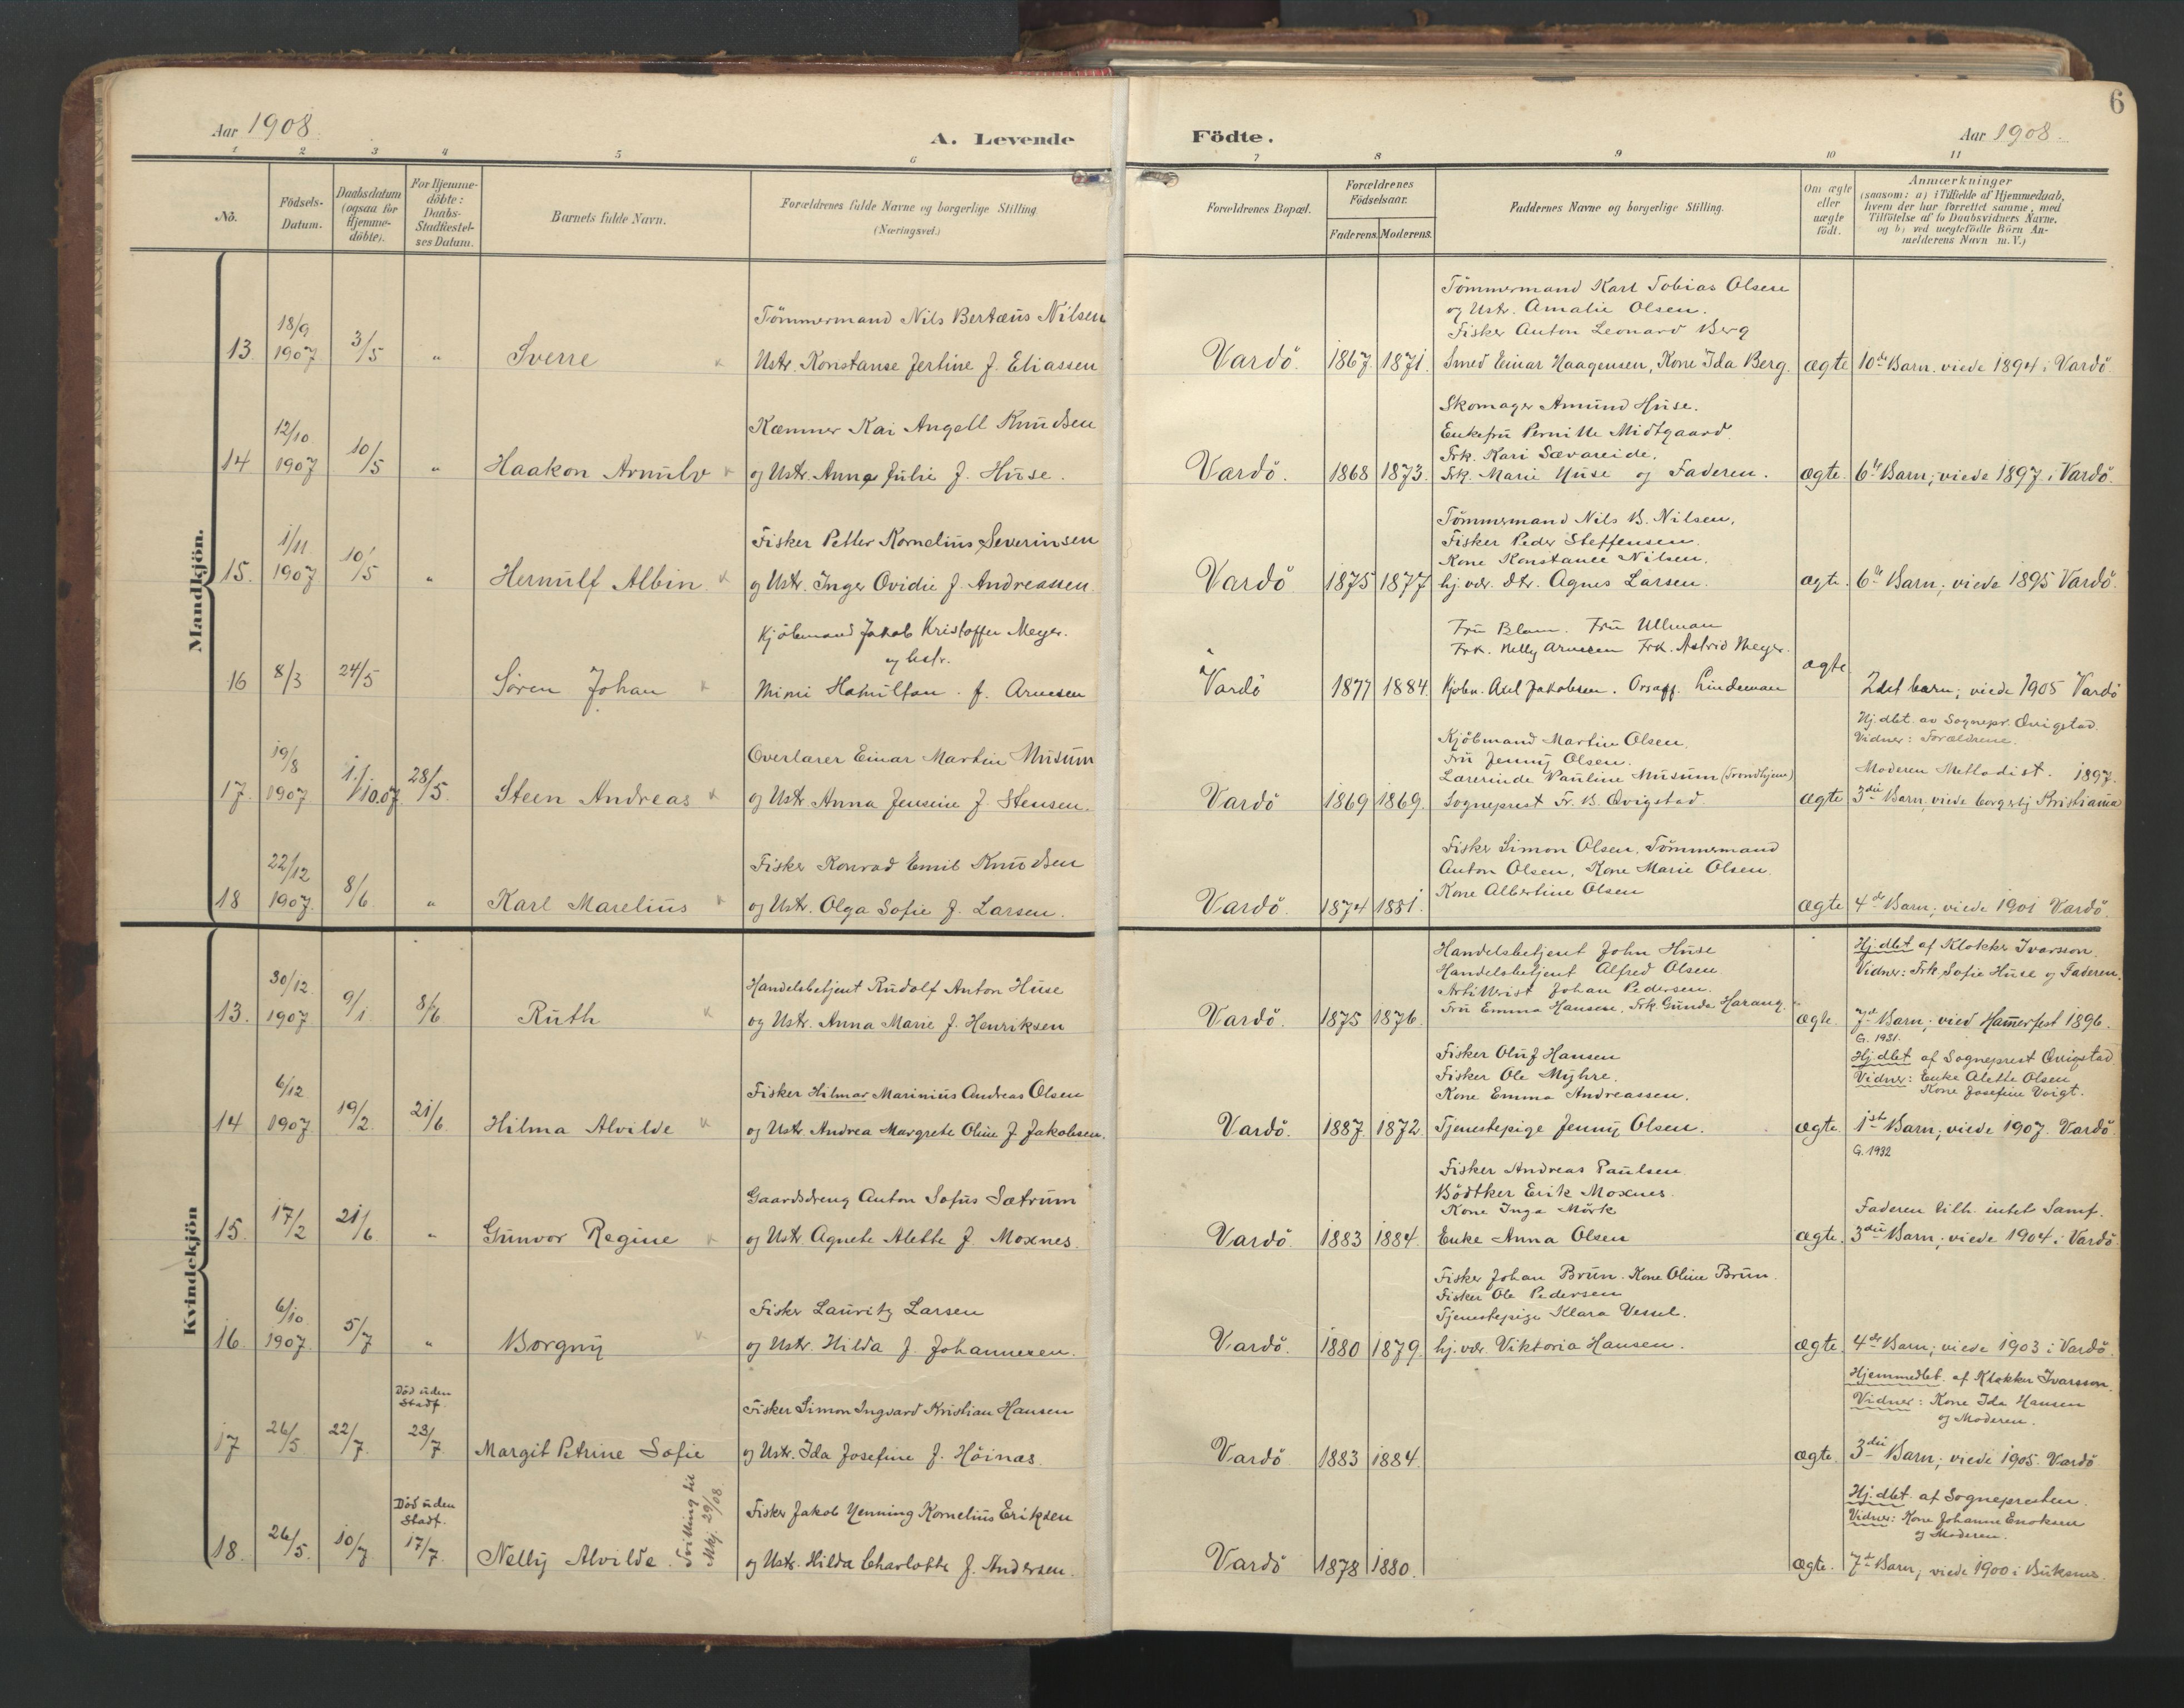 Aar 1908.
A. Levende
Födte.
Aar 1908.
6
1 2 3 4 5 6 7 8 9 10 11
No.
Födsels-
Datum.
Daabsdatum
(ogsaa for
Hjemme-
döbte).
For Hjemme-
döbte:
Daabs-
Stadfæstel-
ses Datum.
Barnets fulde Navn.
Forældrenes fulde Navne og borgerlige Stilling
(Næringsvei.)
Forældrenes Bopæl.
Forældrenes
Födselsaar.
Faderens. Moderens.
Faddernes Navne og borgerlige Stilling.
Om ægte
eller
uægte
födt.
Anmærkninger
(saasom: a) i Tilfælde af Hjemmedaab,
hvem der har forrettet samme, med
Tilföielse af to Daabsvidners Navne,
og b) ved uægtefödte Börn An-
melderens Navn m. V.)
Mandkjön.
13. 18/9 1907 3/5 " Sverre
Tömmermand Nils Bertæus Nilsen
Ustr. Konstanse Jertine f. Eliassen
Vardö. 1867. 1871.
Tömmermand Karl Tobias Olsen
og Ustr. Amalie Olsen.
Fisker Anton Leonard Berg
Smed Einar Haagensen, Kone Ida Berg.
ægte 10de Barn. viede 1894 i Vardö.
14 12/10 1907 10/5 " Haakon Arnulv
Kæmner Kai Angell Knudsen
og Ustr. Anna Julie f. Huse.
Vardö. 1868 1873.
Skomager Amund Huse.
Enkefru Pernille Midtgaard.
Frk. Kari Sævareide.
Frk. Marie Huse og Faderen.
ægte. 6te Barn; viede 1897 i Vardö.
15. 1/11 1907 10/5 " Hernulf Albin
Fisker Petter Kornelius Severinsen
og Ustr. Inger Ovidie f. Andreassen.
Vardö 1875 1877
Tömmermand Nils B. Nilsen,
Fisker Peder Steffensen.
Kone Konstance Nilsen.
hj. vær. dtr. Agnes Larsen.
ægte. 6te Barn; viede 1895 Vardö.
16 8/3 24/5 Søren Johan
Kjöbmand Jakob Kristoffer Meyer.
og hustr.
Mimi Hamilton f. Arnesen
Vardö 1877 1884.
Fru Blom. Fru Ullman
Frk. Nelly Arnesen Frk. Astrid Meyer.
Kjöbm. Axel Jakobsen. Lindeman
ægte 2det barn; viede 1905 Vardö
17. 19/8 1907 1./10.07 28/5. Steen Andreas
Overlærer Einar Martin Musum
og Ustr. Anna Jensine f. Stensen.
Vardö 1869 1869.
Kjöbmand Martin Olsen,
Fru Jenny Olsen.
Lærerinde Pauline Musum (Trondhjem)
Sogneprest Fr. B. Qvigstad.
ægte
Hj. dbt. av Sognepr. Qvigstad.
Vidner: Forældrene.
Moderen Methodist. 1897.
3die Barn, viede borgerlig Kristiania
18 22/12 1907. 8/6 " Karl Marelius
Fisker Konrad Emil Knudsen
og Ustr. Olga Sofie f. Larsen.
Vardö. 1874 1881.
Fisker Simon Olsen, Tömmermand
Anton Olsen, Kone Marie Olsen.
Kone Albertine Olsen
ægte 4de Barn; viede 1901 Vardö.
Kvindekjön
13. 30/12 1907 9/1 8/6 Ruth
Handelsbetjent Rudolf Anton Huse
og Ustr. Anna Marie f. Henriksen
Vardö. 1875 1876.
Handelsbetjent John Huse
Handelsbetjent Alfred Olsen.
Artillerist Johan Pedersen.
Fru Emma Hansen, Frk. Gunda Harang.
ægte.
Hj. dbt af Klokker Ivarsson.
Vidner: Frk. Sofie Huse og Faderen.
7de Barn; vied Hamerfest 1896.
G. 1931.
14 6/12 1907 19/2. 21/6. Hilma Alvilde
Fisker Hilmar Marinius Andreas Olsen
og Ustr. Andrea Margrete Oline f. Jakobsen.
Vardö. 1887. 1872.
Fisker Oluf Hansen
Fisker Ole Myhre.
Kone Emma Andreassen.
Tjenestepige Jenny Olsen.
ægte.
Hj. dbt af Sogneprest Qvigstad
Vidner: Enke Alette Olsen
Kone Josefine Voigt.
1ste Barn; viede 1907. Vardö.
G. 1932
15. 17/2 21/6 " Gunvor Regine
Gaardsdreng Anton Sofus Sætrum
og Ustr. Agnete Alette f. Moxnes.
Vardö. 1883 1884.
Fisker Andreas Paulsen.
Bödtker Erik Moxnes.
Kone Inga Mörk
Enke Anna Olsen
ægte.
Faderen tilh. intet Samf.
3die Barn; viede 1904 i Vardö.
16. 6/10 1907. 5/7 " Borgny
Fisker Lauritz Larsen
og Ustr. Hilda f. Johannesen.
Vardö. 1880 1879.
Fisker Johan Brun. Kone Oline Brun.
Fisker Ole Pedersen
Tjenestepige Klara Vessel.
hj. vær. Viktoria Hansen.
ægte. 4de Barn; viede 1903 i Vardö.
17 26/5 22/7. Död uden Stadf. 23/7. Margit Petrine Sofie
Fisker Simon Ingvard Kristian Hansen
og Ustr. Ida Josefine f. Höinæs.
Vardö. 1883 1884.
ægte.
Hjemmedbt. af Klokker Ivarsson.
Vidner: Kone Ida Hansen
og Moderen.
3die Barn; viede 1905. Vardö
18. 26/5. 10/7 Död uden Stadf. 17/7. Nelly Alvilde.
Tvilling til
Mkj. 29/08.
Fisker Jakob Henning Kornelius Eriksen
og Ustr. Hilda Charlotte f. Andersen.
Vardö 1878 1880.
ægte.
Hj. dbt. af Sognepresten.
Vidner: Kone Johanne Enoksen
og Moderen.
7de Barn; viede 1900 i Buksnes.